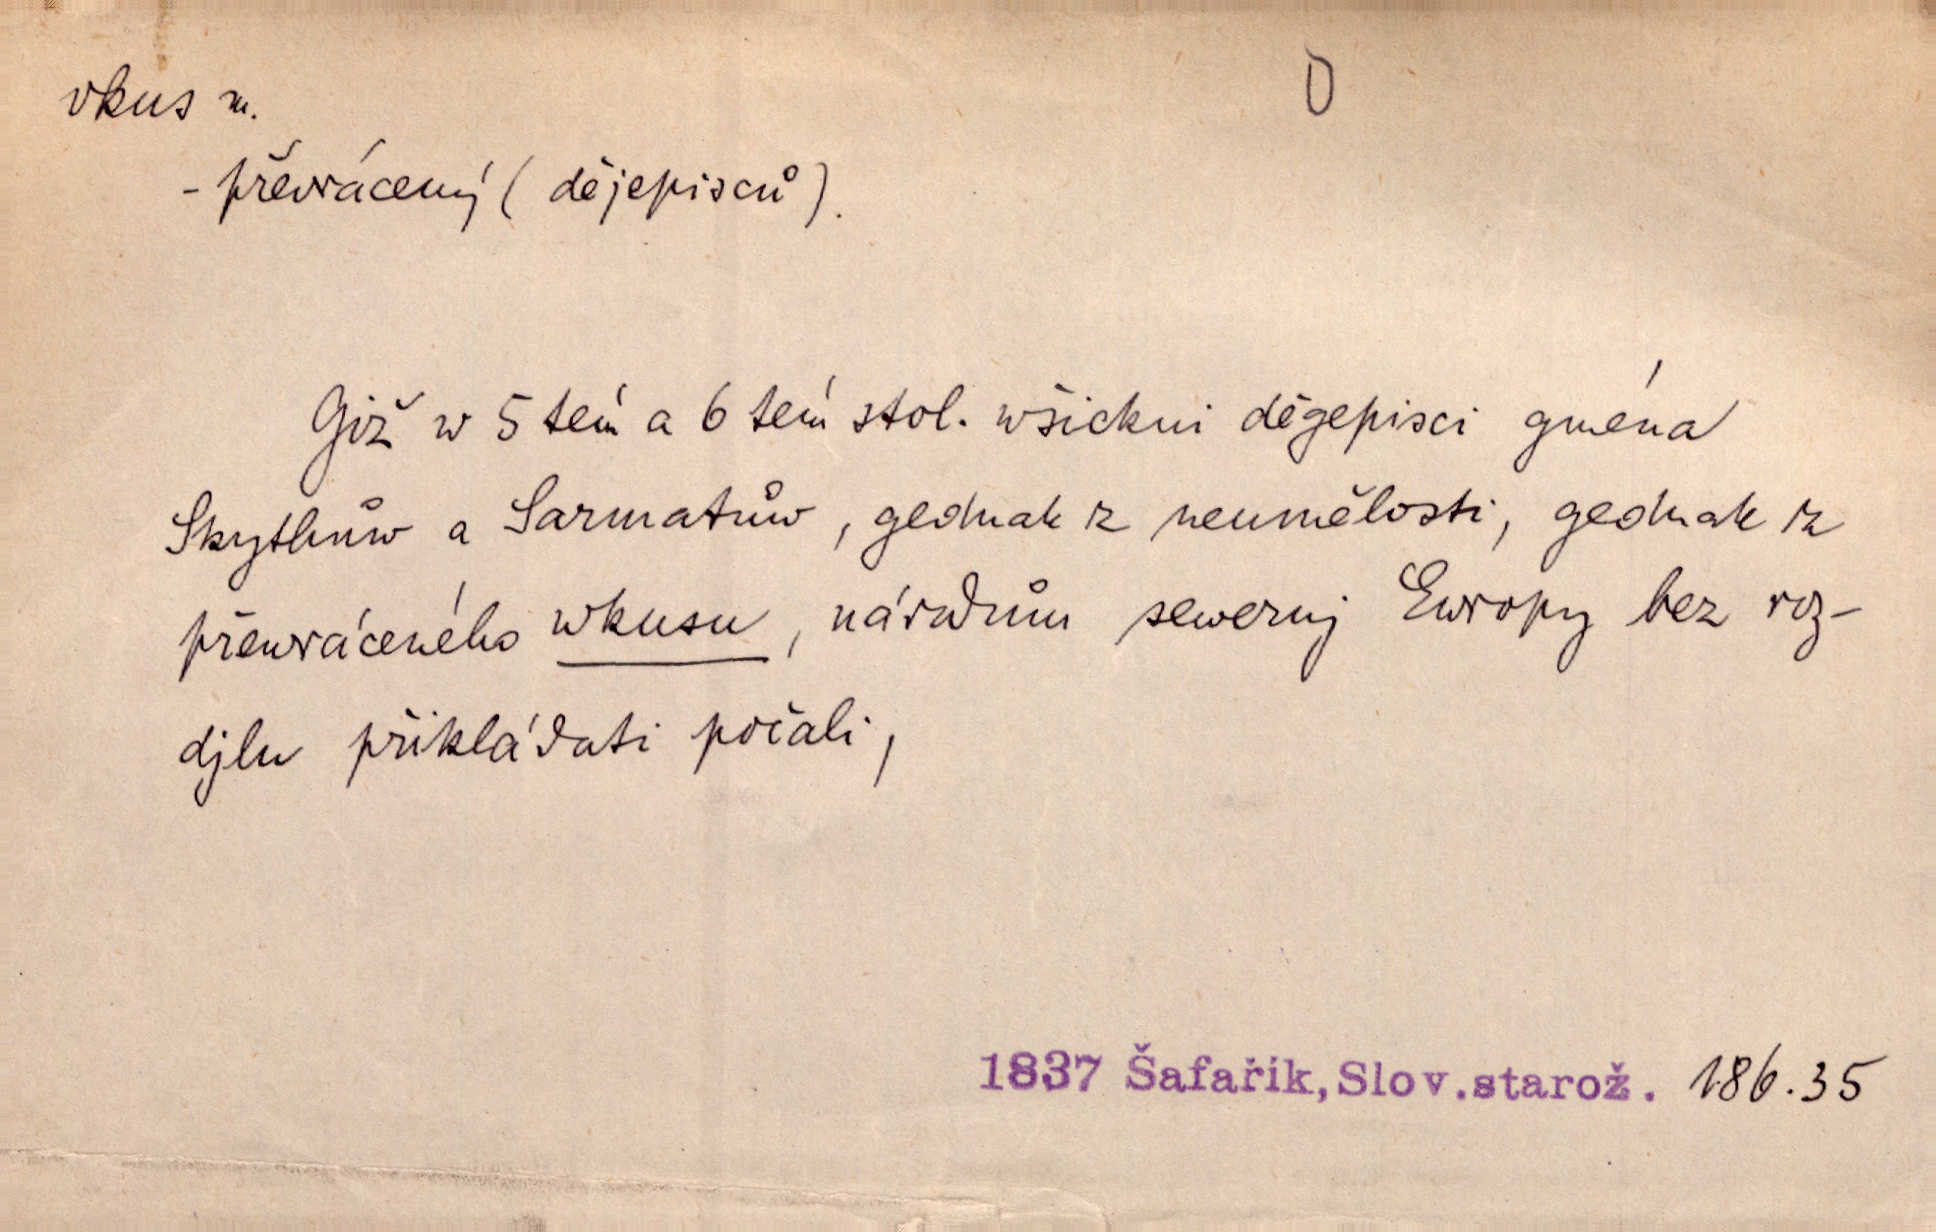 vkus m.
O
- převrácený (dějepisců).
Giž w 5tém a 6tém stol. wšickni děgepisci gména
Skythůw a Sarmatůw, gednak z neumělosti, gednak z
přewráceného wkusu, národům sewernj Ewropy bez roz-
djlu přikládati počali,
1837 Šafařík, Slov. starož. 186.35